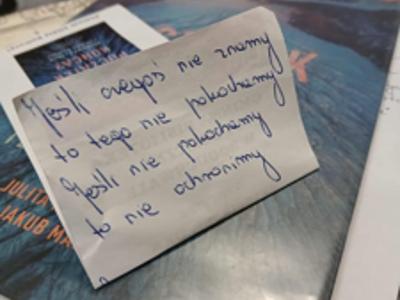 Jeśli czegoś nie znamy
to tego nie pokochamy
Jeśli nie pokochamy
to nie ochronimy
JULITA
JAKUB MA